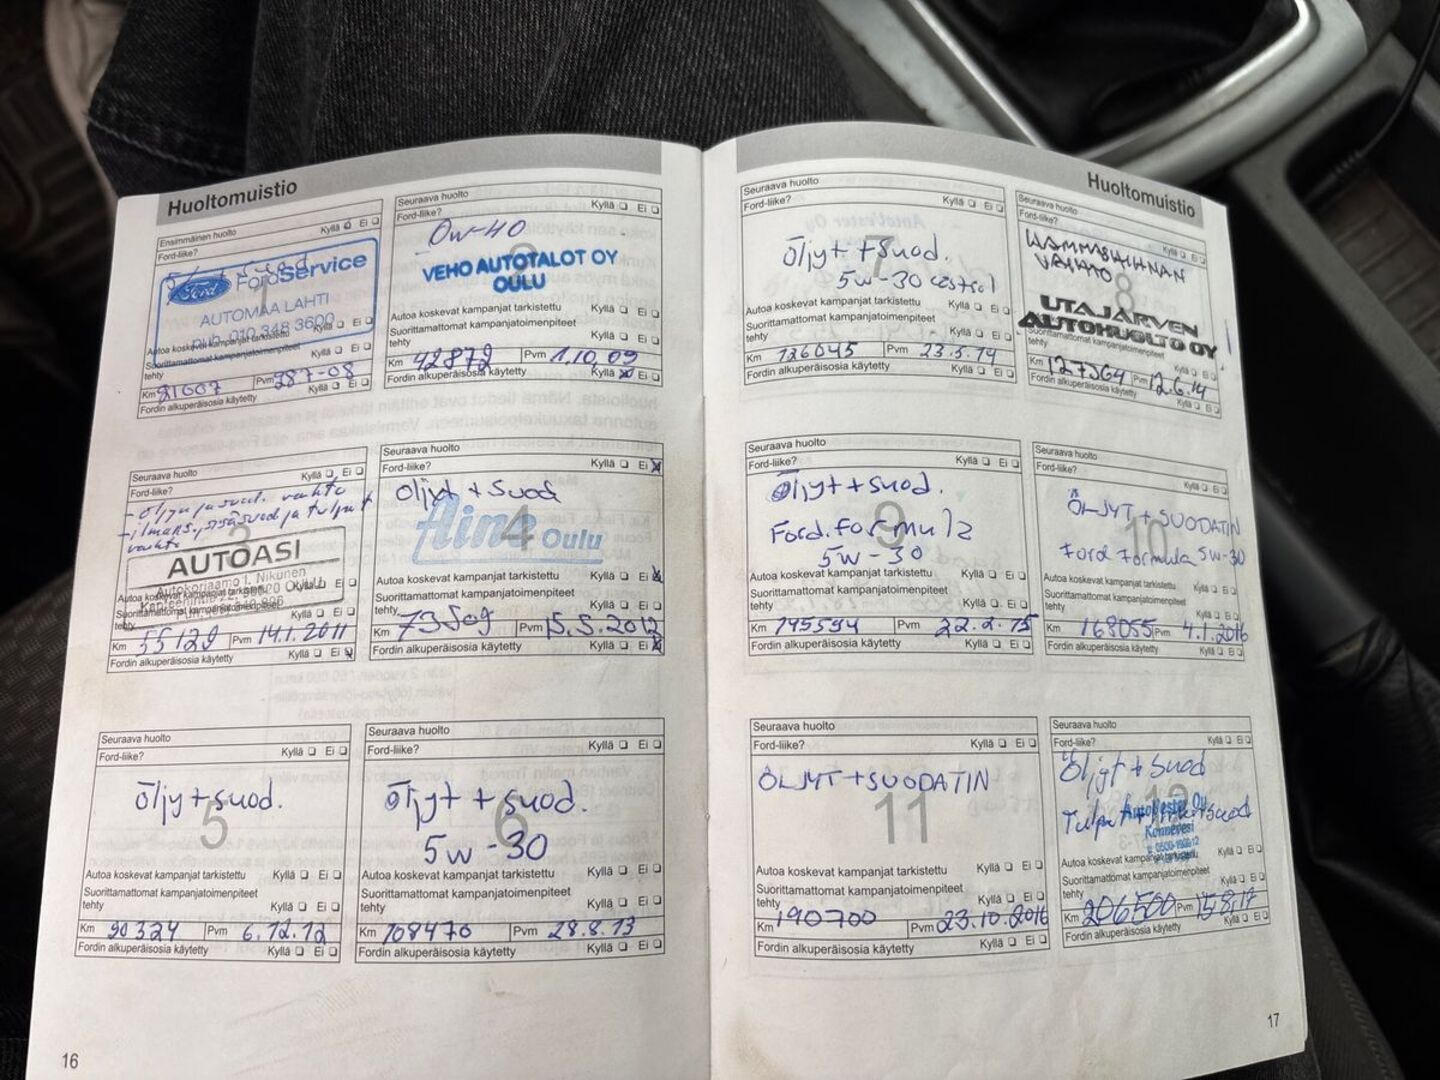 Huoltomuistio
Ensimmäinen huolto
Ford-liike? Kyllä Ei
Ford Service
AUTOMAA LAHTI
puh. 010 348 3600
1
Autoa koskevat kampanjat tarkistettu Kyllä Ei
Suorittamattomat kampanjatoimenpiteet
tehty Kyllä Ei
Km 21607 Pvm 28.7-08
Fordin alkuperäisosia käytetty Kyllä Ei
Seuraava huolto
Ford-liike? Kyllä Ei
0w-40
2
VEHO AUTOTALOT OY
OULU
Autoa koskevat kampanjat tarkistettu Kyllä Ei
Suorittamattomat kampanjatoimenpiteet
tehty Kyllä Ei
Km 42872 Pvm 1.10.09
Fordin alkuperäisosia käytetty Kyllä Ei
Seuraava huolto
Ford-liike? Kyllä Ei
- öljyn ja suod. vaihto
- ilmans., sisäsuod ja tulpat
vaihto
3
AUTOASI
Autokorjaamo I. Nikunen
Autoa koskevat kampanjat tarkistettu Kyllä Ei
Suorittamattomat kampanjatoimenpiteet
tehty Kyllä Ei
Km 55129 Pvm 14.1.2011
Fordin alkuperäisosia käytetty Kyllä Ei
Seuraava huolto
Ford-liike? Kyllä Ei
öljyt + suod
4
Aine Oulu
Autoa koskevat kampanjat tarkistettu Kyllä Ei
Suorittamattomat kampanjatoimenpiteet
tehty Kyllä Ei
Km Pvm 15.5.2012
Fordin alkuperäisosia käytetty Kyllä Ei
Seuraava huolto
Ford-liike? Kyllä Ei
öljy + suod.
5
Autoa koskevat kampanjat tarkistettu Kyllä Ei
Suorittamattomat kampanjatoimenpiteet
tehty Kyllä Ei
Km 90324 Pvm 6.12.12
Fordin alkuperäisosia käytetty Kyllä Ei
Seuraava huolto
Ford-liike? Kyllä Ei
öljyt + suod.
6
5w-30
Autoa koskevat kampanjat tarkistettu Kyllä Ei
Suorittamattomat kampanjatoimenpiteet
tehty Kyllä Ei
Km 108470 Pvm 28.8.13
Fordin alkuperäisosia käytetty Kyllä Ei
16
Huoltomuistio
Seuraava huolto
Ford-liike? Kyllä Ei
öljyt + suod.
7
5w-30 castrol
Autoa koskevat kampanjat tarkistettu Kyllä Ei
Suorittamattomat kampanjatoimenpiteet
tehty Kyllä Ei
Km 126045 Pvm 23.5.14
Fordin alkuperäisosia käytetty Kyllä Ei
Seuraava huolto
Ford-liike? Kyllä Ei
HAMMASHIHNAN
VAIHTO
8
UTAJÄRVEN
AUTOHUOLTO OY
Suorittamattomat kampanjatoimenpiteet
tehty Kyllä Ei
Km 127364 Pvm 12.6.14
Fordin alkuperäisosia käytetty Kyllä Ei
Seuraava huolto
Ford-liike? Kyllä Ei
öljyt + suod.
9
Ford. formula
5w-30
Autoa koskevat kampanjat tarkistettu Kyllä Ei
Suorittamattomat kampanjatoimenpiteet
tehty Kyllä Ei
Km 145594 Pvm 22.2.15
Fordin alkuperäisosia käytetty Kyllä Ei
Seuraava huolto
Ford-liike? Kyllä Ei
ÖLJYT + SUODATIN
10
Ford Formula 5w-30
Autoa koskevat kampanjat tarkistettu Kyllä Ei
Suorittamattomat kampanjatoimenpiteet
tehty Kyllä Ei
Km 168055 Pvm 4.1.2016
Fordin alkuperäisosia käytetty Kyllä Ei
Seuraava huolto
Ford-liike? Kyllä Ei
ÖLJYT + SUODATIN
11
Autoa koskevat kampanjat tarkistettu Kyllä Ei
Suorittamattomat kampanjatoimenpiteet
tehty Kyllä Ei
Km 190700 Pvm 23.10.2016
Fordin alkuperäisosia käytetty Kyllä Ei
Seuraava huolto
Ford-liike? Kyllä Ei
öljyt + suod
12
AutoVester Oy
Konnevesi
Autoa koskevat kampanjat tarkistettu Kyllä Ei
Suorittamattomat kampanjatoimenpiteet
tehty Kyllä Ei
Km 206500 Pvm 15.8.17
Fordin alkuperäisosia käytetty Kyllä Ei
17